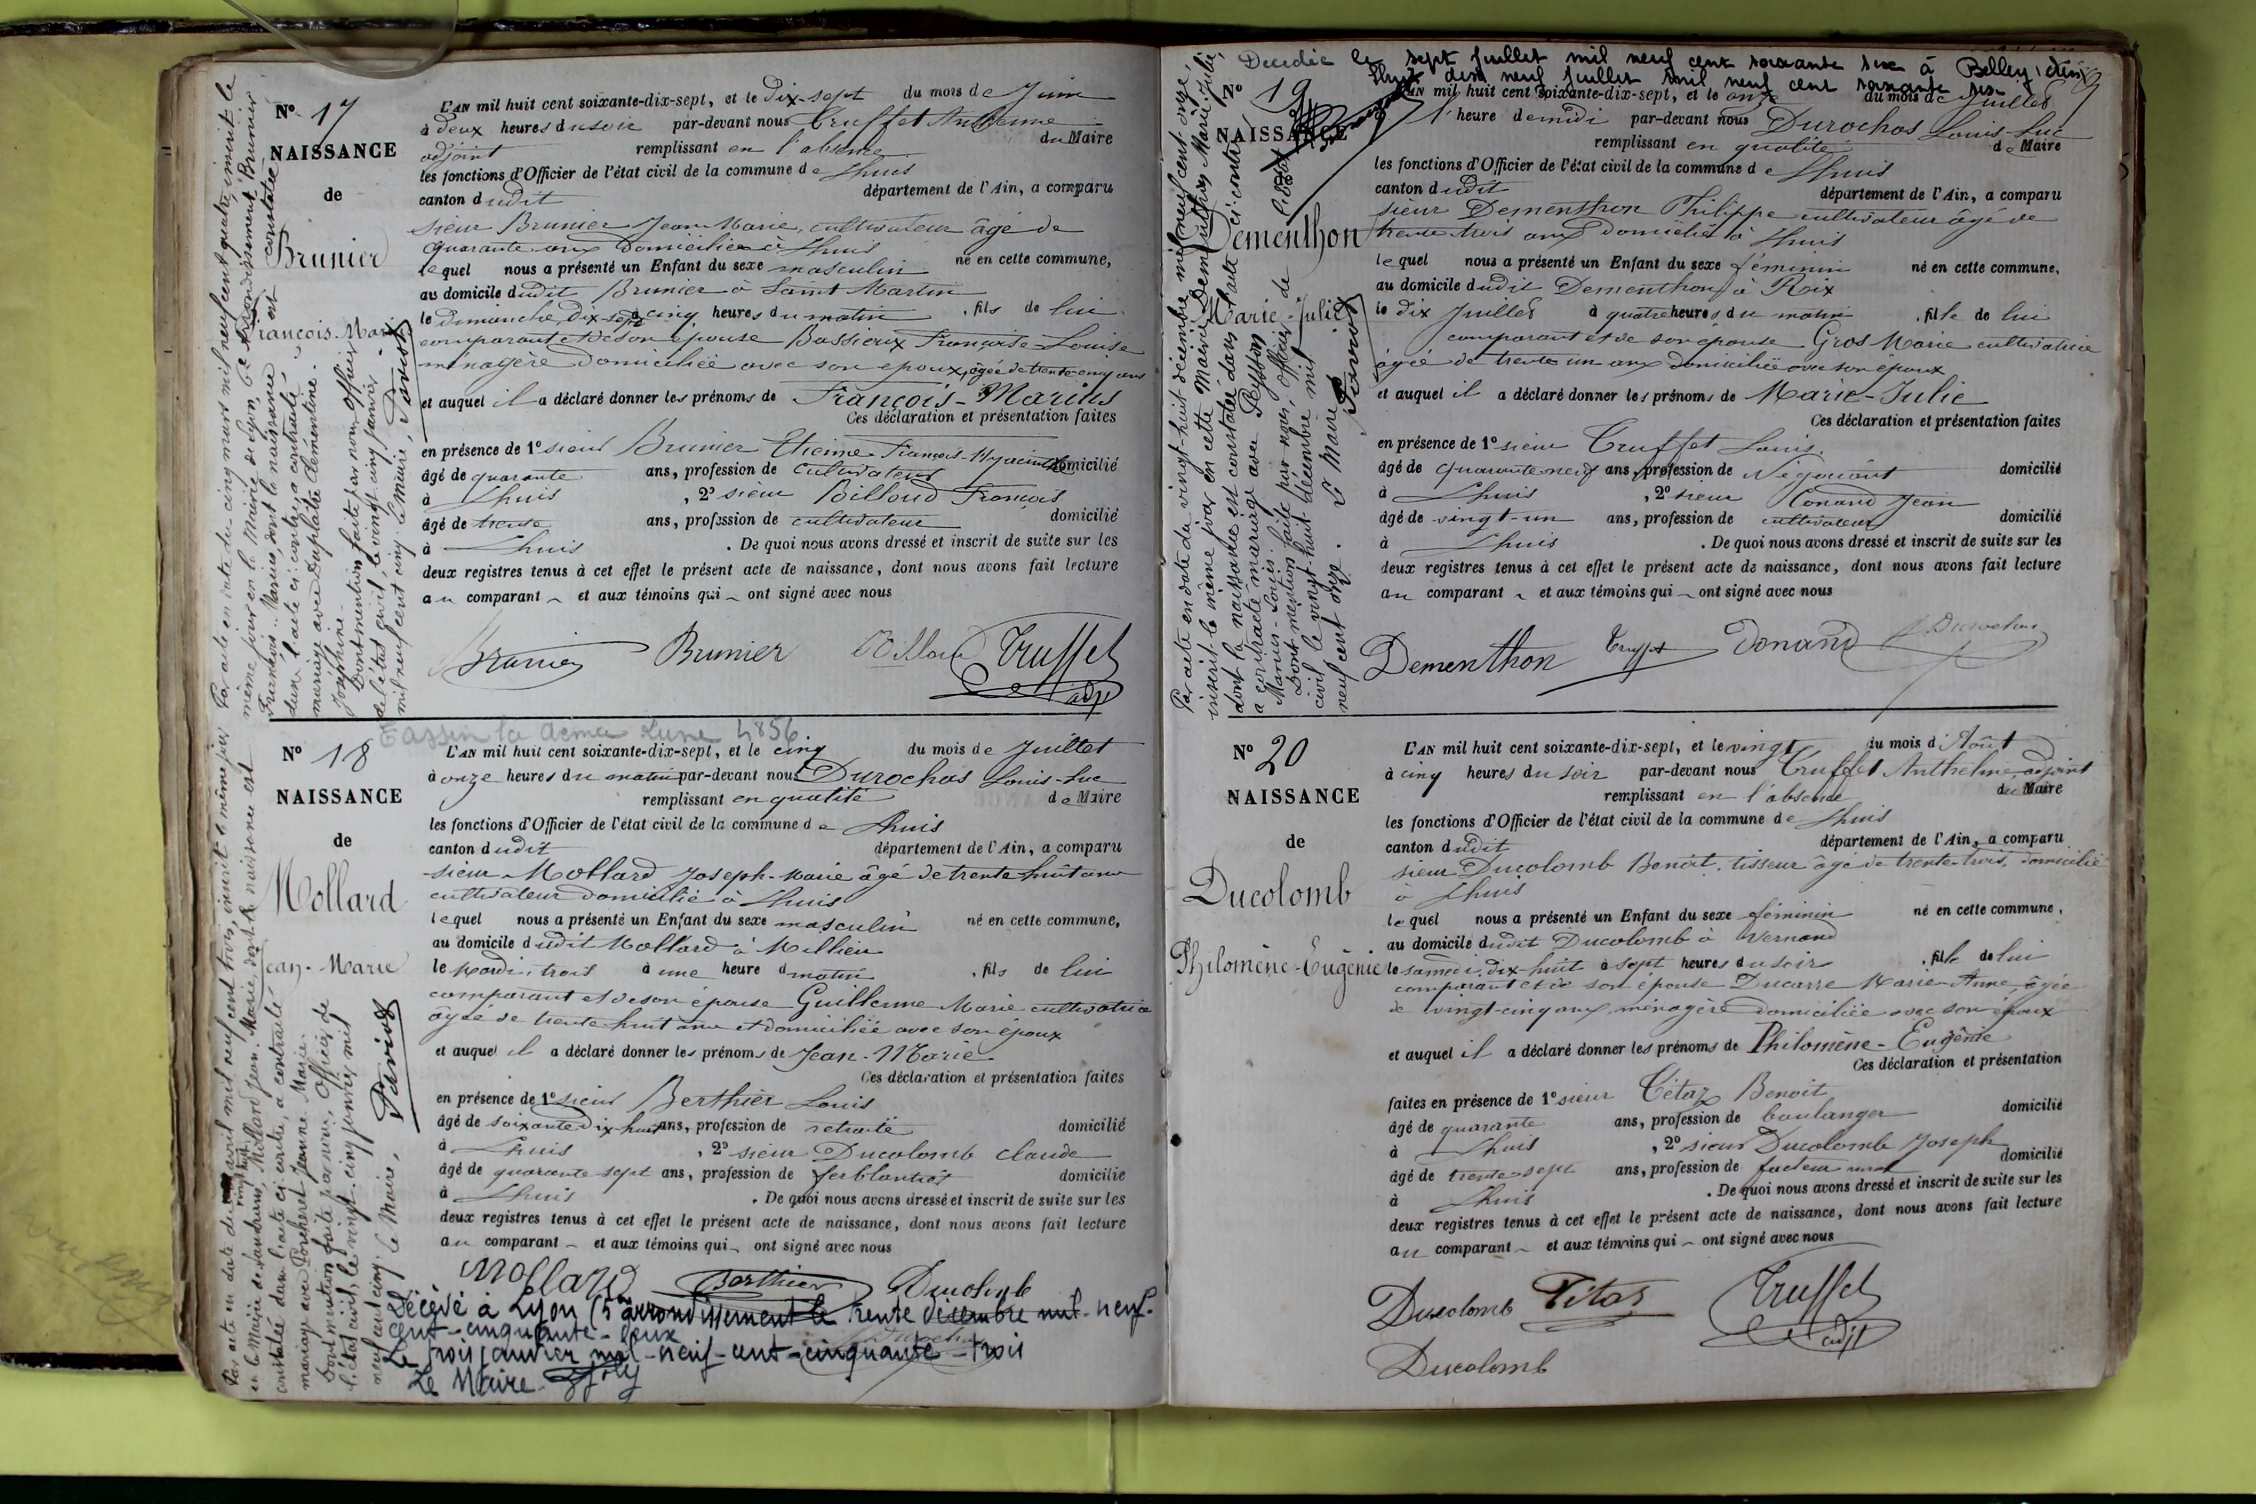 N° 17
NAISSANCE
de
Brunier
François-Marius
L'AN mil huit cent soixante-dix-sept, et le dix-sept du mois de Juin
à deux heures du soir par-devant nous Truffet Anthelme
adjoint remplissant en l'absence du Maire
les fonctions d'Officier de l'état civil de la commune de Lhuis
canton dudit département de l'Ain, a comparu
sieur Brunier Jean-Marie, cultivateur âgé de
quarante ans domicilié à Lhuis
lequel nous a présenté un Enfant du sexe masculin né en cette commune,
au domicile dudit Brunier à Saint Martin
le Dimanche, dix-sept à cinq heures du matin, fils de lui
comparant et de son épouse Bassieux Françoise-Louise
ménagère domiciliée avec son époux, âgée de trente-cinq ans
et auquel il a déclaré donner les prénoms de François-Marius
Ces déclaration et présentation faites
en présence de 1° sieur Brunier Etienne François-Hyacinthe
âgé de quarante ans, profession de cultivateur domicilié
à Lhuis, 2° sieur Billoud François
âgé de trente ans, profession de cultivateur domicilié
à Lhuis. De quoi nous avons dressé et inscrit de suite sur les
deux registres tenus à cet effet le présent acte de naissance, dont nous avons fait lecture
au comparant et aux témoins qui ont signé avec nous
Brunier Brunier Billoud Truffet
adjt
Par acte en date du cinq mars mil neuf cent quatre, inscrit le
même jour en la Mairie de Lyon, 6e arrondissement, Brunier
François-Marius, dont la naissance est constatée
dans l'acte ci-contre, a contracté
mariage avec Duplatre Clémentine
Joséphine.
Dont mention faite par nous, officier
de l'état civil, le vingt cinq janvier
mil neuf cent cinq. Le Maire,
Tassin la Demi Lune 1856
N° 18
NAISSANCE
de
Mollard
Jean-Marie
L'AN mil huit cent soixante-dix-sept, et le cinq du mois de Juillet
à onze heures du matin par-devant nous Durochas Louis-Luc
remplissant en qualité de Maire
les fonctions d'Officier de l'état civil de la commune de Lhuis
canton dudit département de l'Ain, a comparu
sieur Mollard Joseph-Marie âgé de trente huit ans
cultivateur domicilié à Lhuis
lequel nous a présenté un Enfant du sexe masculin né en cette commune,
au domicile dudit Mollard à Millieu
le Mardi, trois à une heure du matin, fils de lui
comparant et de son épouse Guillerme Marie cultivatrice
âgée de trente huit ans et domiciliée avec son époux
et auquel il a déclaré donner les prénoms de Jean-Marie
Ces déclaration et présentation faites
en présence de 1° sieur Berthier Louis
âgé de soixante Dix-huit ans, profession de retraité domicilié
à Lhuis, 2° sieur Ducolomb Claude
âgé de quarante-sept ans, profession de ferblantier domicilié
à Lhuis. De quoi nous avons dressé et inscrit de suite sur les
deux registres tenus à cet effet le présent acte de naissance, dont nous avons fait lecture
au comparant et aux témoins qui ont signé avec nous
Mollard Berthier Ducolomb
Décédé à Lyon (5e arrondissement le trente décembre mil-neuf-
cent-cinquante-deux
Le trois janvier mil-neuf-cent-cinquante-trois
Le Maire
Par acte en date du vingt huit avril mil neuf cent trois, inscrit le même jour
en la Mairie de, Mollard Jean-Marie, dont la naissance est
constatée dans l'acte ci-contre, a contracté
mariage avec Porcheret Jeanne Marie.
Dont mention faite par nous, Officier de
l'état civil, le vingt cinq janvier mil
neuf cent cinq. Le Maire,
Décédée le sept juillet mil neuf cent soixante six à Belley (Ain)
Lhuis dix neuf juillet mil neuf cent soixante six
N° 19
NAISSANCE
de
Dementhon
Marie-Julie
L'AN mil huit cent soixante-dix-sept, et le onze du mois de Juillet
à l'heure de midi par-devant nous Durochas Louis-Luc
remplissant en qualité de Maire
les fonctions d'Officier de l'état civil de la commune de Lhuis
canton dudit département de l'Ain, a comparu
sieur Dementhon Philippe cultivateur âgé de
trente trois ans domicilié à Lhuis
lequel nous a présenté un Enfant du sexe féminin né en cette commune,
au domicile dudit Dementhon à Rix
le dix Juillet à quatre heures du matin, fille de lui
comparant et de son épouse Gros Marie cultivatrice
âgée de trente un ans domiciliée avec son époux
et auquel il a déclaré donner les prénoms de Marie-Julie
Ces déclaration et présentation faites
en présence de 1° sieur Truffet Louis.
âgé de quarante neuf ans, profession de Négociant domicilié
à Lhuis, 2° sieur Donand Jean
âgé de vingt-un ans, profession de cultivateur domicilié
à Lhuis. De quoi nous avons dressé et inscrit de suite sur les
deux registres tenus à cet effet le présent acte de naissance, dont nous avons fait lecture
au comparant et aux témoins qui ont signé avec nous
Dementhon Truffet Donand Durochas
Par acte en date du vingt-huit décembre mil neuf cent onze,
inscrit le même jour en cette Mairie Dementhon Marie-Julie,
dont la naissance est constatée dans l'acte ci-contre
a contracté mariage avec Peysson
Marius-Louis.
Dont mention faite par nous, Officier de l'état
civil le vingt-huit décembre mil
neuf cent onze. Le Maire
N° 20
NAISSANCE
de
Ducolomb
Philomène-Eugénie
L'AN mil huit cent soixante-dix-sept, et le vingt du mois d'Août
à cinq heures du soir par-devant nous Truffet Anthelme, adjoint
remplissant en l'absence du Maire
les fonctions d'Officier de l'état civil de la commune de Lhuis
canton dudit département de l'Ain, a comparu
sieur Ducolomb Benoît, tisseur âgé de trente-trois, domicilié
à Lhuis
lequel nous a présenté un Enfant du sexe féminin né en cette commune,
au domicile dudit Ducolomb à Vernand
le samedi, dix-huit à sept heures du soir, fille de lui
comparant et de son épouse Ducarre Marie-Anne, âgée
de vingt-cinq ans, ménagère domiciliée avec son époux
et auquel il a déclaré donner les prénoms de Philomène-Eugénie
Ces déclaration et présentation
faites en présence de 1° sieur Tétaz Benoît
âgé de quarante ans, profession de boulanger domicilié
à Lhuis, 2° sieur Ducolomb Joseph
âgé de trente-sept ans, profession de facteur rural domicilié
à Lhuis. De quoi nous avons dressé et inscrit de suite sur les
deux registres tenus à cet effet le présent acte de naissance, dont nous avons fait lecture
au comparant et aux témoins qui ont signé avec nous
Ducolomb Tétaz Truffet
adjt
Ducolomb